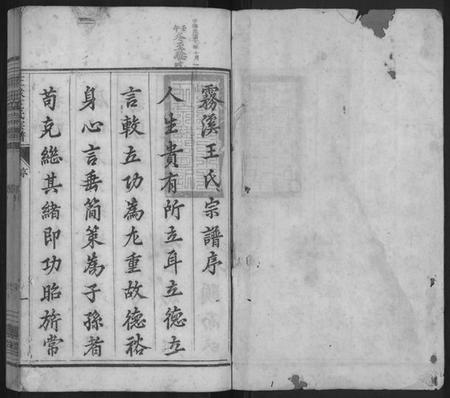 霧溪王氏宗譜序
人生貴有所立耳立德立
言較立功為尤重故德裕
身心言垂簡策為子孫者
苟克繼其緒即功昭旂常